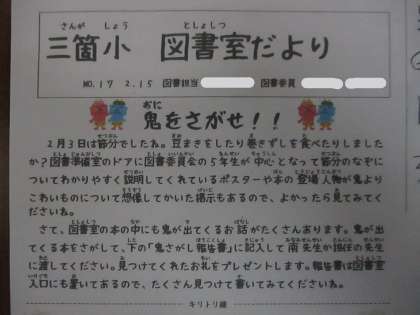 三箇小　図書室だより
NO.17　2.15　図書担当　図書委員
鬼をさがせ！！
２月３日は節分でしたね。豆まきをしたり巻きずしを食べたりしました
か？図書準備室のドアに図書委員会の５年生が中心となって節分のなぞに
ついてわかりやすく説明してくれているポスターや本の登場人物が鬼より
こわいものについて想像してかいた掲示もあるので、よかったら見てみてく
ださいね。
さて、図書室の本の中にも鬼が出てくるお話がたくさんあります。鬼が出
てくる本をさがして、下の「鬼さがし報告書」に記入して南先生か担任の先生
に渡してください。見つけてくれたお礼をプレゼントします。報告書は図書室
入口にも置いてあるので、たくさん見つけて書いてみてくださいね。
キリトリ線